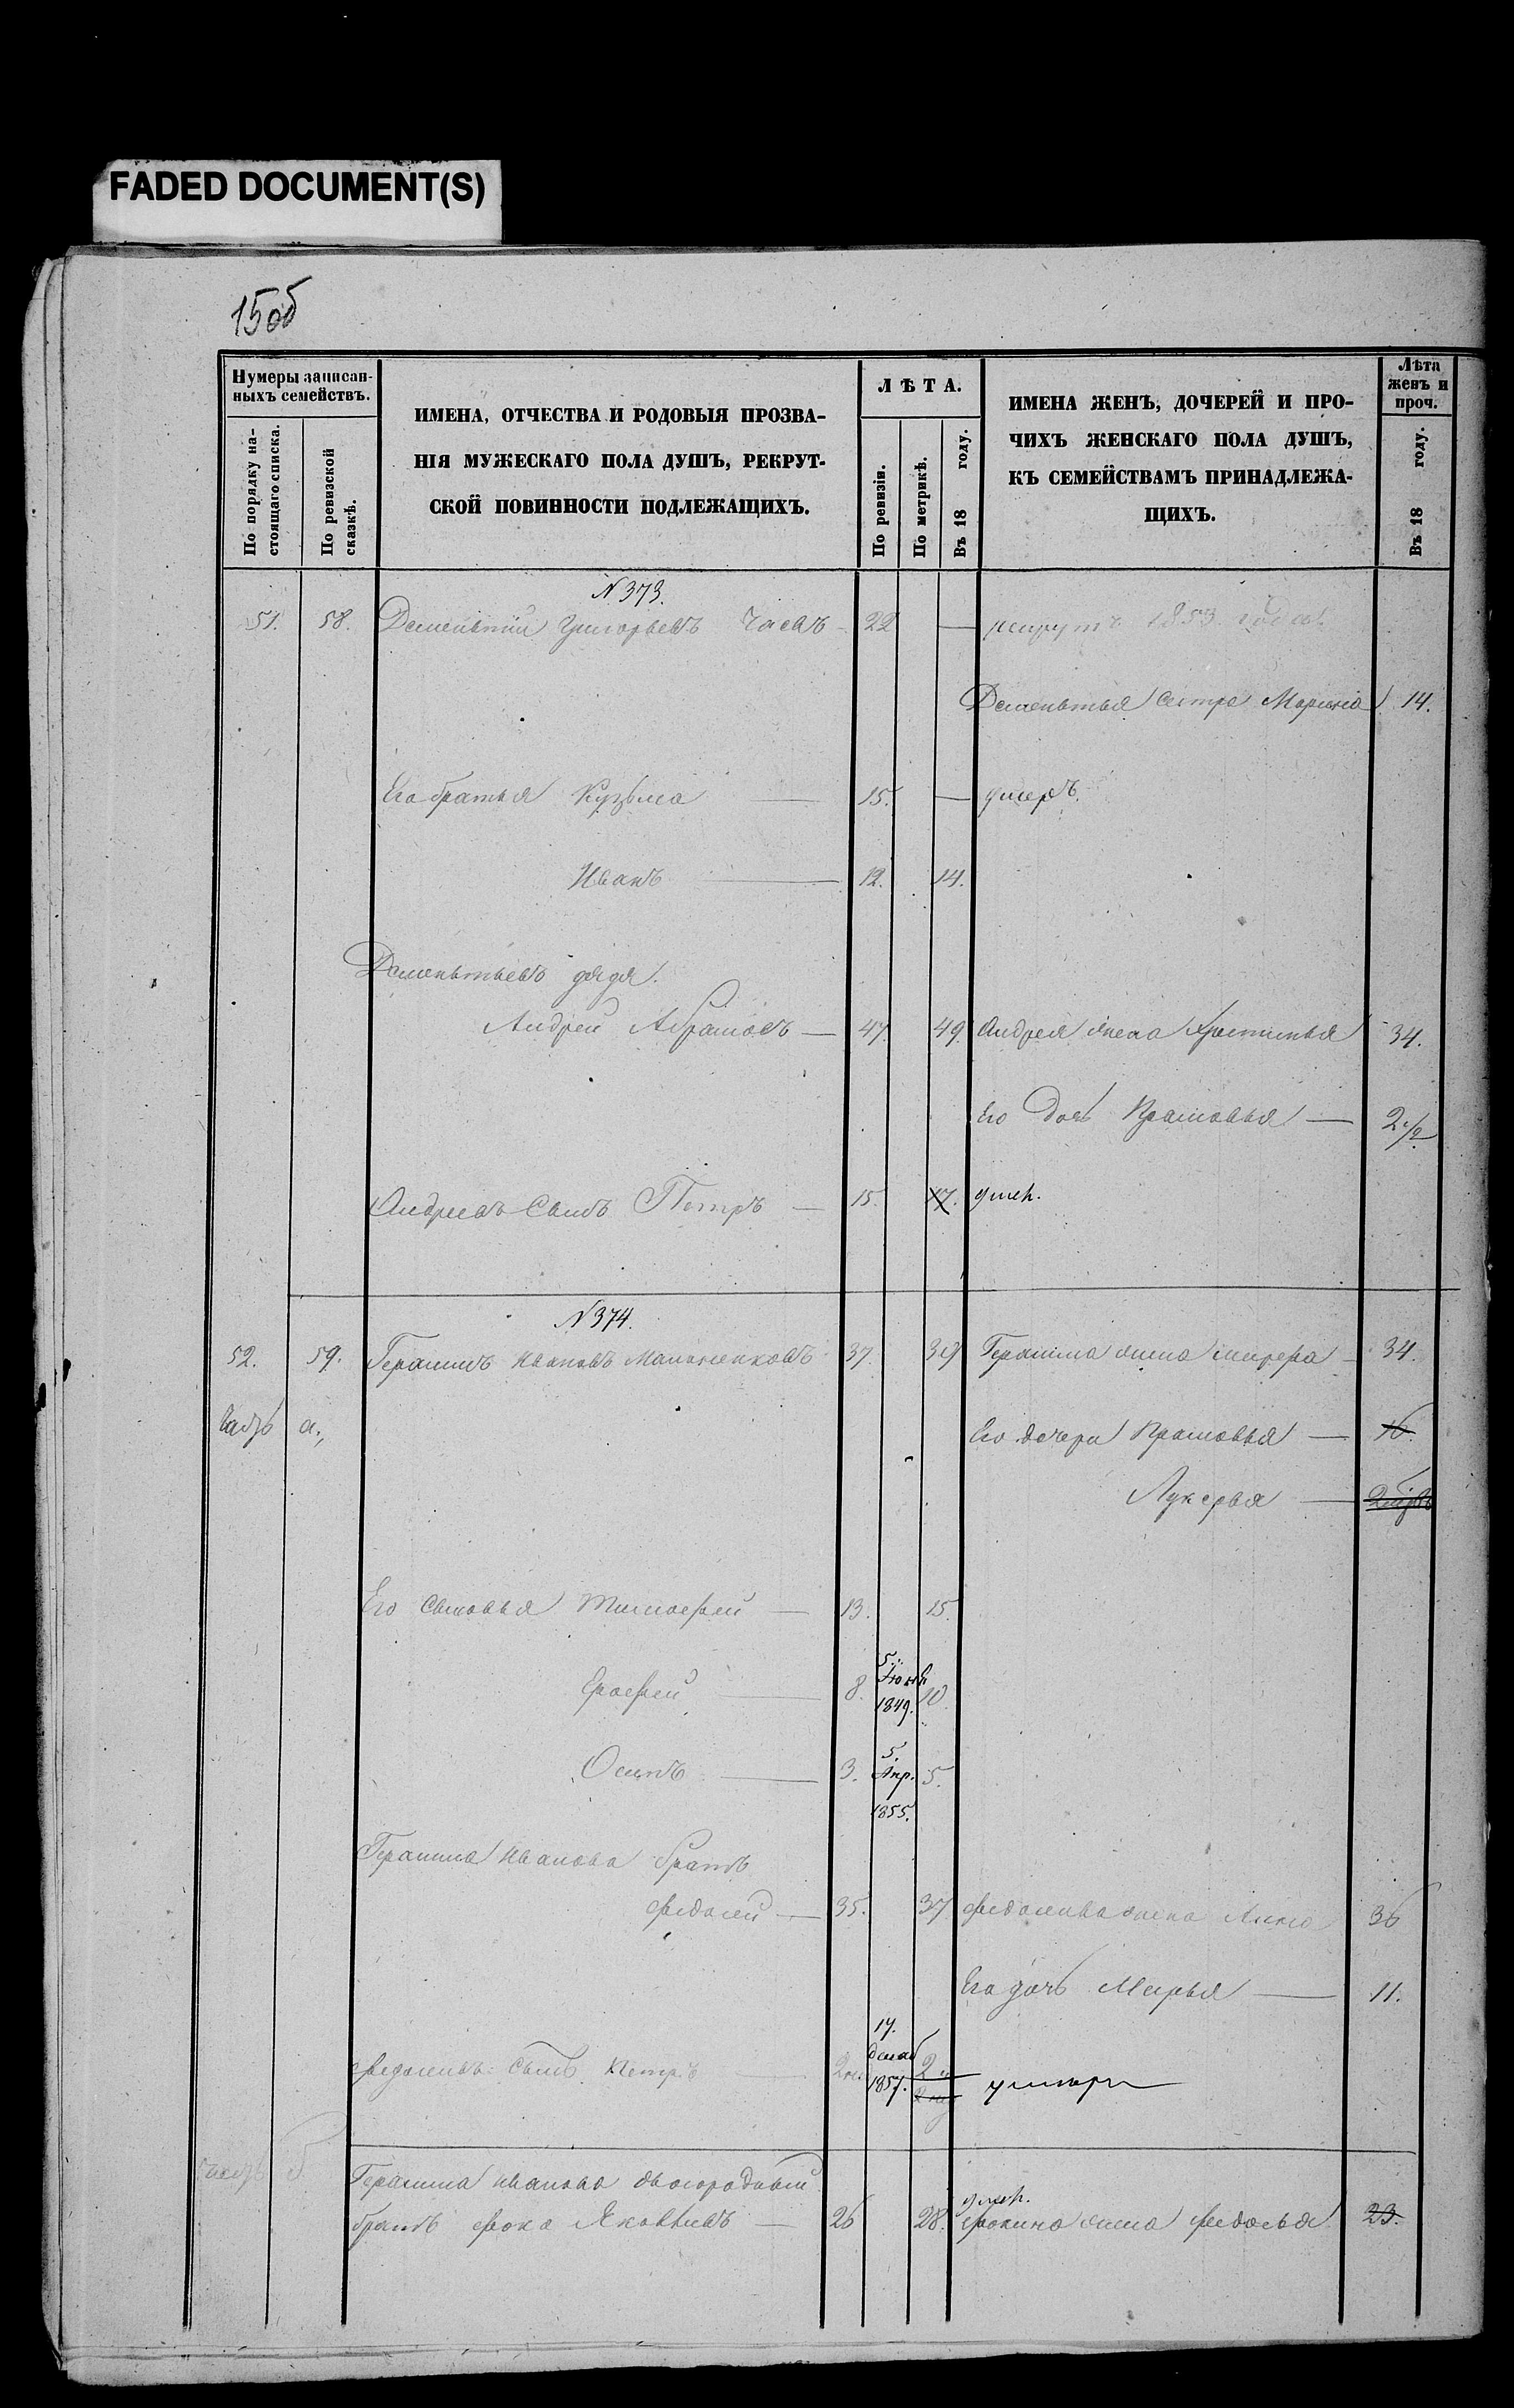 FADED DOCUMENT(S)
15об
Нумеры записан-
ныхъ семействъ.
По порядку на-
стоящаго списка.
По ревизской
сказкѣ.
ИМЕНА, ОТЧЕСТВА И РОДОВЫЯ ПРОЗВА-
НІЯ МУЖЕСКАГО ПОЛА ДУШЪ, РЕКРУТ-
СКОЙ ПОВИННОСТИ ПОДЛЕЖАЩИХЪ.
ЛѢТА.
По ревизіи.
По метрикѣ.
Въ 18 году.
ИМЕНА ЖЕНЪ, ДОЧЕРЕЙ И ПРО-
ЧИХЪ ЖЕНСКАГО ПОЛА ДУШЪ,
КЪ СЕМЕЙСТВАМЪ ПРИНАДЛЕЖА-
ЩИХЪ.
Лѣта
женъ и
проч.
Въ 18 году.
N 373.
51. 58. Дементій Григорьевъ 22 — рекрутъ 1853 года.
Дементья сестра 14.
Его братья Кузьма — 15. — умеръ.
Иванъ — 12. 14.
Дементьевъ дядя.
Андрей Абрамовъ — 47. 49. Андрея жена Христинья 34.
Его дочь Прасковья — 2 1/2
Андреевъ Сынъ Петръ — 15. 17. умер.
N 374.
52. 59. Герасимъ Ивановъ 37. 39 Герасима жена 34.
а., Его дочери Прасковья — 16.
Лукерья —
Его Сыновья Тимофей — 13. 15.
Ерофей — 8. 5. Іюня 1849. 10.
Осипъ — 3. 5. Апр. 1855. 5.
Герасима Иванова братъ
Федосей — 35. 37 Федосеива жена Анна 36
Его дочь Марья — 11.
Федосеивъ Сынъ Петръ — 17. декаб 1857. умеръ
б. Герасима Иванова двоюродный
братъ Фока Яковлевъ — 26 28. умер. Фокина жена Федосья 23.